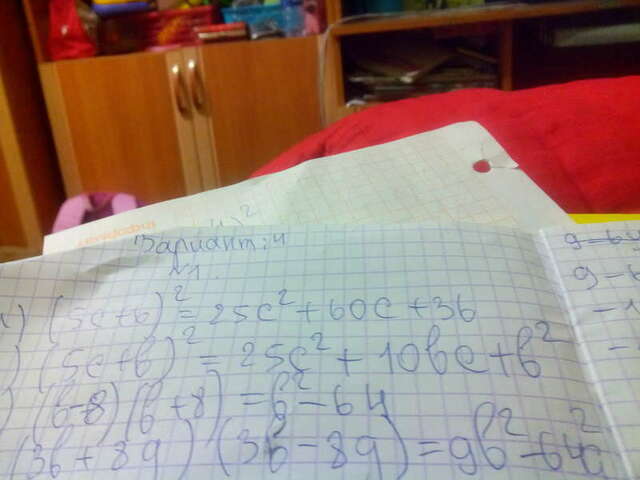 Вариант: 4
№1.
(5c+6)² = 25c² + 60c + 36
(5c+b)² = 25c² + 10bc + b²
(b-8)(b+8) = b² - 64
(3b+8g) (3b-8g) = 9b² - 64g²
9-64